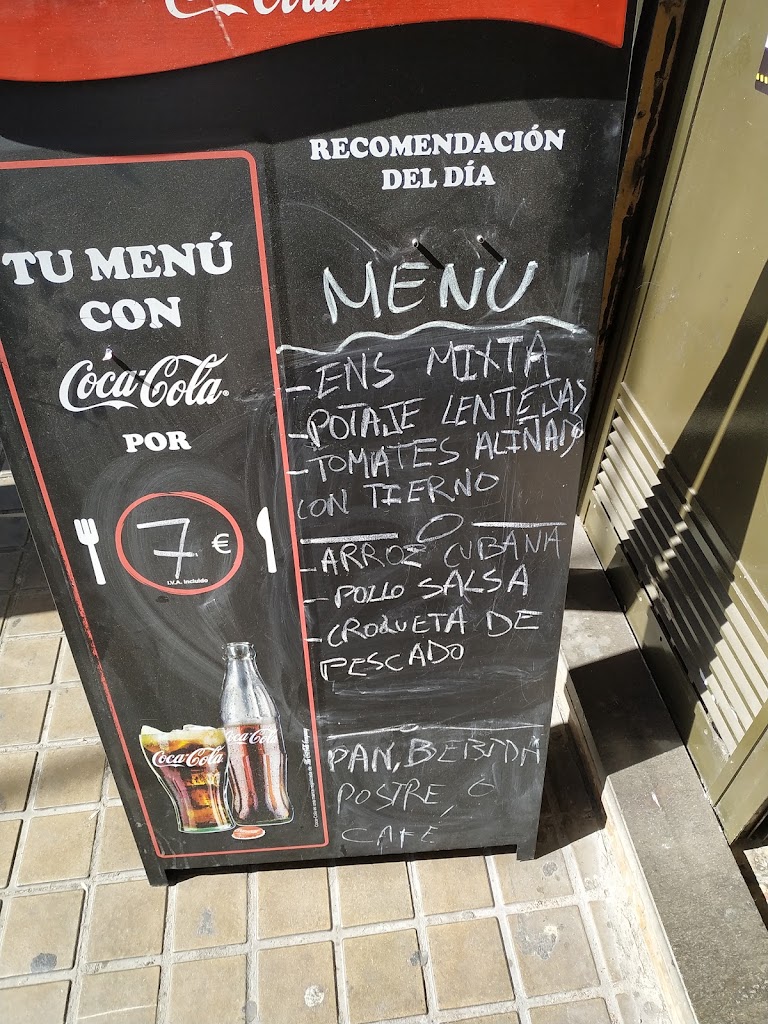 Coca-Cola
TU MENÚ
CON
Coca-Cola
POR
7 €
I.V.A. incluido
Coca-Cola
Coca-Cola
RECOMENDACIÓN
DEL DÍA
MENU
- ENS MIXTA
- POTAJE LENTEJAS
- TOMATES ALIÑAD
CON TIERNO
- ARROZ CUBANA
- POLLO SALSA
- CROQUETA DE
PESCADO
PAN, BEBIDA
POSTRE Ó
CAFÉ